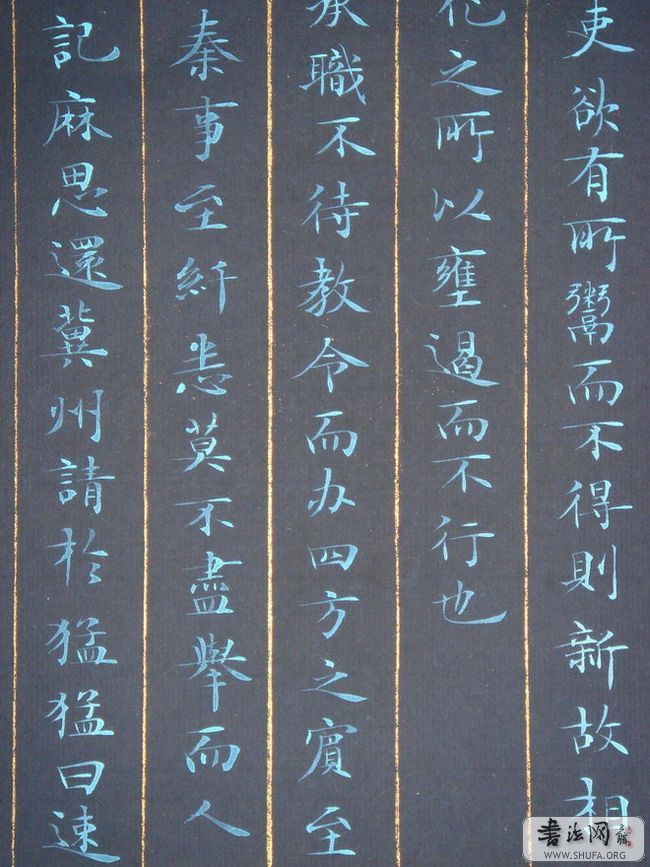 吏欲有所鬻而不得則新故相
化之所以壅遏而不行也
承職不待教令而办四方之賓至
秦事至纤悉莫不盡舉而人
記麻思還冀州請於猛猛曰速
書法网
WWW.SHUFA.ORG